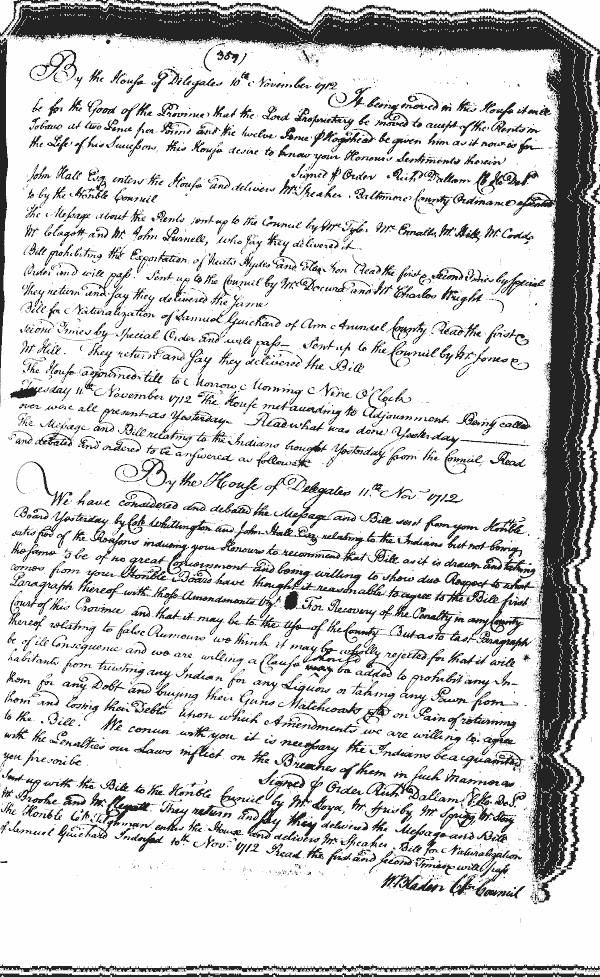 (389)
By the House of Delegates 10th November 1712
It being moved in this House it will
be for the Good of the Province that the Lord Proprietary be moved to accept of the Rents in
Tobacco at two Pence per Pound and the twelve Pence p Hogshead be given him as it now is for
the Life of his Successors, this House desire to know your Honours Sentiments therein
Signed p Order Richd Dallam Cl Ho Del
John Hall Esq enters the House and delivers Mr Speaker Baltimore County Ordinance assented
to by the Honble Council
The Message about the Rents sent up to the Council by Mr Tyler Mr Ennalls, Mr Hill, Mr Codds
Mr Clagott and Mr John Purnell, who say they delivered it
Bill prohibiting the Exportation of Neats Hydes and Old Iron Read the first & Second Times by Special
Order and will pass. Sent up to the Council by Mr Docura and Mr Charles Wright
They return and say they delivered the same
Bill for Naturalization of Samuel Guichard of Ann Arundel County Read the first &
Second Times by Special Order and will pass Sent up to the Council by Mr Jones &
Mr Hill. They return and say they delivered the Bill
The House adjourned till to Morrow Morning Nine O'Clock
Tuesday 11th November 1712 The House met according to Adjournment Being called
over were all present as Yesterday Read what was done Yesterday
The Message and Bill relating to the Indians brought Yesterday from the Council Read
and debated and ordered to be answered as followeth
By the House of Delegates 11th Novr 1712
We have considered and debated the Message and Bill sent from your Honble
Board Yesterday by Colo Whittington and John Hall Esq relating to the Indians but not being
satisfied of the Reasons inducing your Honours to recommend that Bill as it is drawn and taking
the same to be of no great Concernment and being willing to show due Respect to what
comes from your Honble Board have thought it reasonable to agree to the Bill first
Paragraph thereof with those Amendments by For Recovery of the Penalty in any County
Court of this Province and that it may be to the Use of the County But as to the last Paragraph
thereof relating to false Rumours we think it may be wholly rejected for that it will
be of ill Consequence and we are willing a Clause should be added to prohibit any In-
habitants from trusting any Indian for any Liquors or taking any Pawn from
them for any Debt and buying their Guns Matchcoats on Pain of returning
them and losing their Debts upon which Amendments we are willing to agree
to the Bill. We concur with you it is necessary the Indians be acquainted
with the Penalties our Laws inflict on the Breaches of them in such Manner as
you prescribe
Signed p Order Richd Dallam Cl Ho Del
Sent up with the Bill to the Honble Council by Mr Loyd, Mr Frisby Mr Sprigg Mr
Mr Brooke and Mr Clagott They return and say they delivered the Message and Bill
The Honble Colo Tilghman enters the House and delivers Mr Speaker, Bill for Naturalization
of Samuel Guichard Indorsed 10th Novr 1712 Read the first and second Times & will pass
W Bladen Cl Council